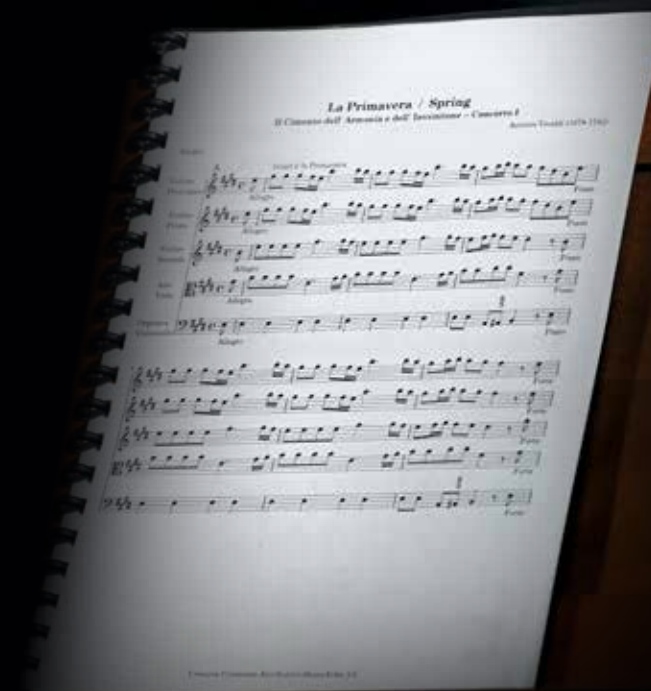 La Primavera / Spring
Il Cimento dell' Armonia e dell' Invenzione - Concerto I
Antonio Vivaldi (1678-1741)
A
Violino
Principale
Allegro
Piano
Violino
Primo
Allegro
Piano
Violino
Secondo
Allegro
Piano
Alto
Viola
Allegro
Piano
Organo e
Violoncello
Allegro
Piano
Forte
Forte
Forte
Forte
Forte